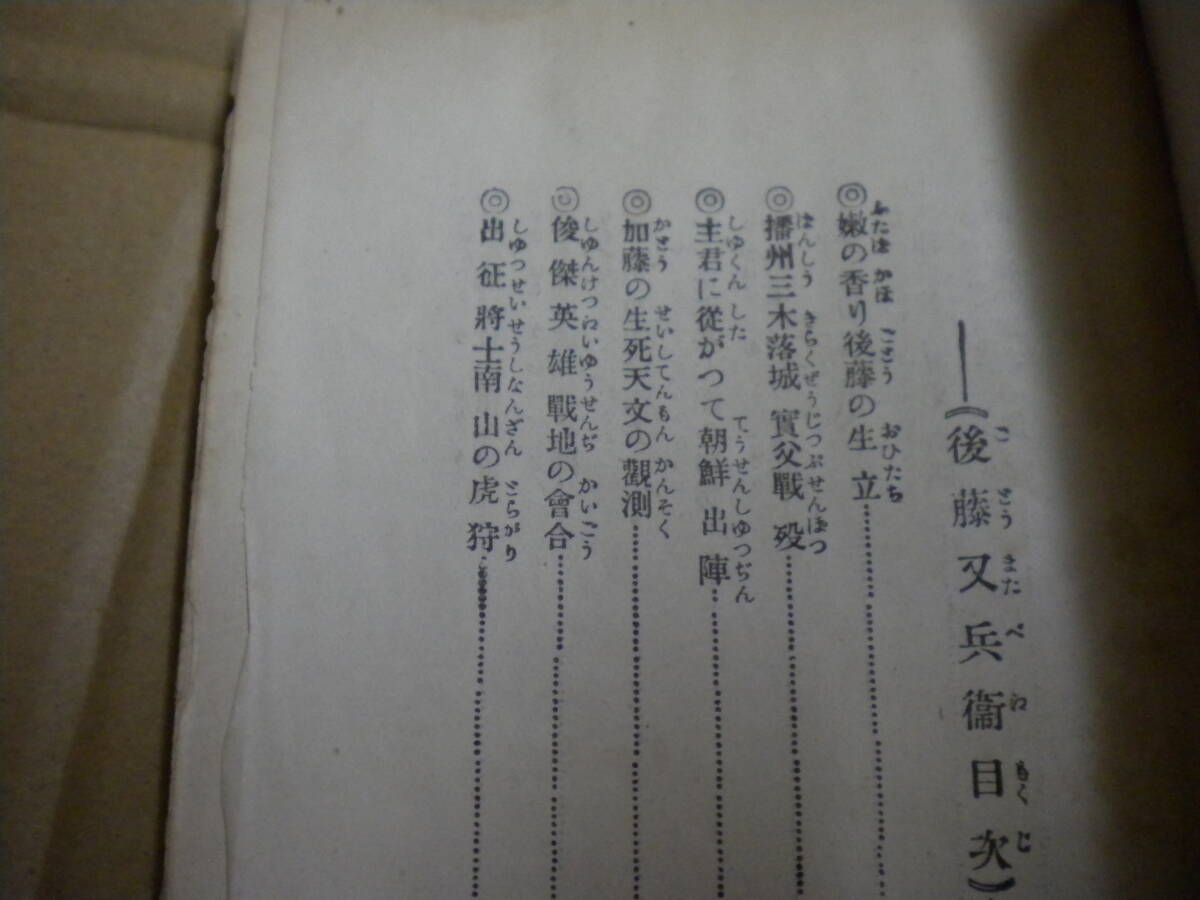 ——《後藤又兵衞目次》
◎嫩の香り後藤の生立……………
◎播州三木落城實父戰歿……………
◎主君に從がつて朝鮮出陣……………
◎加藤の生死天文の觀測……………
◎俊傑英雄戰地の會合……………
◎出征將士南山の虎狩……………